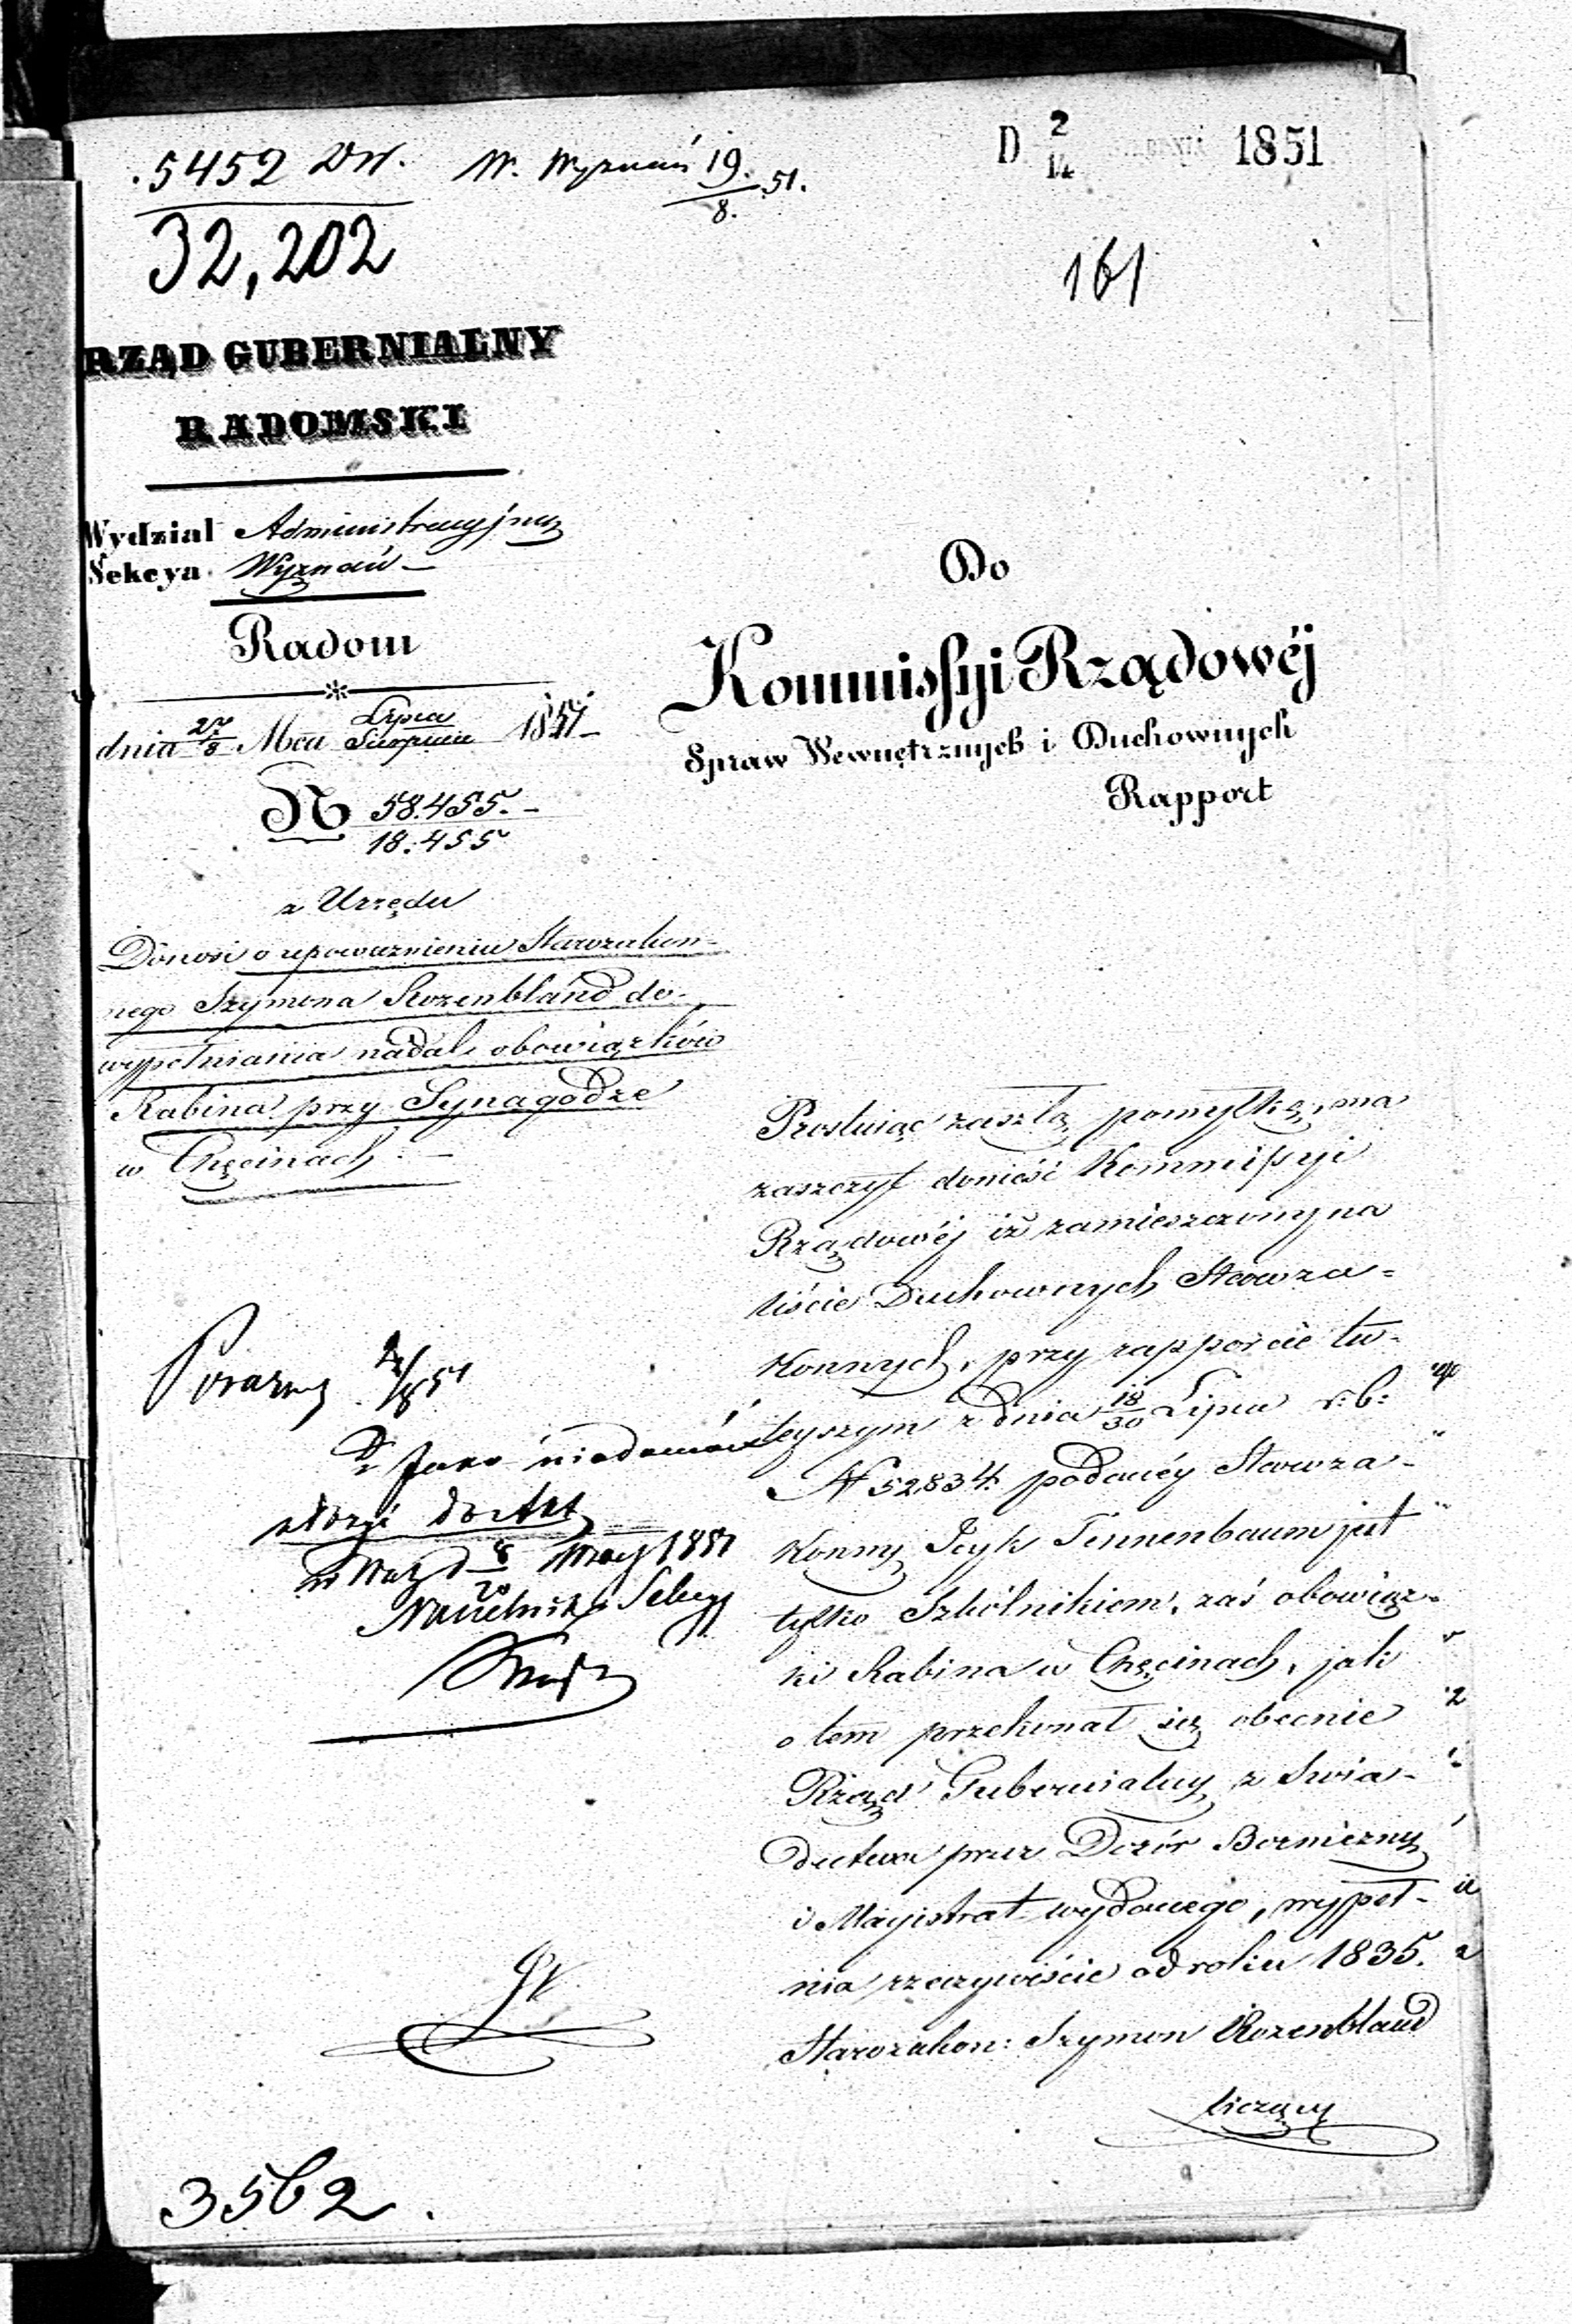 5452 DW. W. Wyznań 19/8. 51.
D 2/14 1851
32,202
161
RZĄD GUBERNIALNY
RADOMSKI
Wydział Administracyjny
Sekcya Wyznań
Radom
dnia 27/8 Mca Lipca/Sierpnia 1851
N 58.455./18.455
z Urzędu
Donosi o upoważnieniu Starozakon-
nego Szymona Rozenbland do
wypełniania nadal obowiązków
Rabina przy Synagodze
w Chęcinach.
Do
Kommissyi Rządowéj
Spraw Wewnętrznych i Duchownych
Rapport
Prostując zaszłą pomyłkę, ma
zaszczyt donieść Kommissyi
Rządowéj iż zamieszczony na
liście Duchownych Staroza=
konnych, przy rapporcie tu-
tejszym z dnia 18/30 Lipca r: b:
N 52834 podanéy Staroza-
konny Icyk Tennenbaum jest
tylko Szkólnikiem, zaś obowiąz-
ki Rabina w Chęcinach, jak
o tem przekonał się obecnie
Rząd Gubernialny z Świa-
dectwa przez Dozór Bożniczny
i Magistrat wydanego, wypeł-
nia rzeczywiście od roku 1835.
Starozakon: Szymon Rozenbland
liczący
51
Jako wiadomość
złożyć do Akt
1851
Naczelnik Sekcyi
3562.